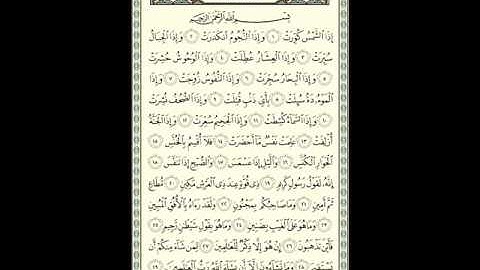 بِسْمِ اللَّهِ الرَّحْمَٰنِ الرَّحِيمِ
إِذَا الشَّمْسُ كُوِّرَتْ ١ وَإِذَا النُّجُومُ انكَدَرَتْ ٢ وَإِذَا الْجِبَالُ
سُيِّرَتْ ٣ وَإِذَا الْعِشَارُ عُطِّلَتْ ٤ وَإِذَا الْوُحُوشُ حُشِرَتْ
٥ وَإِذَا الْبِحَارُ سُجِّرَتْ ٦ وَإِذَا النُّفُوسُ زُوِّجَتْ ٧ وَإِذَا
الْمَوْءُودَةُ سُئِلَتْ ٨ بِأَيِّ ذَنبٍ قُتِلَتْ ٩ وَإِذَا الصُّحُفُ نُشِرَتْ
١٠ وَإِذَا السَّمَاءُ كُشِطَتْ ١١ وَإِذَا الْجَحِيمُ سُعِّرَتْ ١٢ وَإِذَا الْجَنَّةُ
أُزْلِفَتْ ١٣ عَلِمَتْ نَفْسٌ مَّا أَحْضَرَتْ ١٤ فَلَا أُقْسِمُ بِالْخُنَّسِ ١٥
الْجَوَارِ الْكُنَّسِ ١٦ وَاللَّيْلِ إِذَا عَسْعَسَ ١٧ وَالصُّبْحِ إِذَا تَنَفَّسَ ١٨
إِنَّهُ لَقَوْلُ رَسُولٍ كَرِيمٍ ١٩ ذِي قُوَّةٍ عِندَ ذِي الْعَرْشِ مَكِينٍ ٢٠ مُّطَاعٍ
ثَمَّ أَمِينٍ ٢١ وَمَا صَاحِبُكُم بِمَجْنُونٍ ٢٢ وَلَقَدْ رَآهُ بِالْأُفُقِ الْمُبِينِ
٢٣ وَمَا هُوَ عَلَى الْغَيْبِ بِضَنِينٍ ٢٤ وَمَا هُوَ بِقَوْلِ شَيْطَانٍ رَّجِيمٍ ٢٥
فَأَيْنَ تَذْهَبُونَ ٢٦ إِنْ هُوَ إِلَّا ذِكْرٌ لِّلْعَالَمِينَ ٢٧ لِمَن شَاءَ مِنكُمْ أَن
يَسْتَقِيمَ ٢٨ وَمَا تَشَاءُونَ إِلَّا أَن يَشَاءَ اللَّهُ رَبُّ الْعَالَمِينَ ٢٩